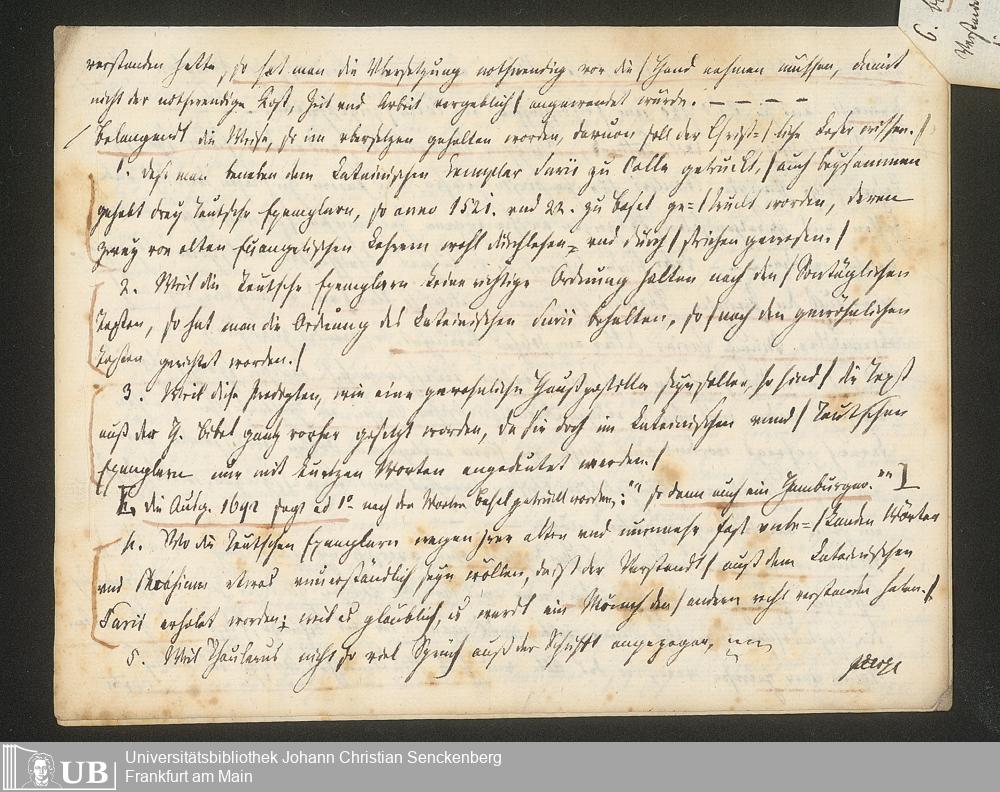 verstanden hette, so hat man die Übersetzung nothwendig vor die / Hand nehmen müssen, damit
nicht der nothwendige Kost, Zeit und Arbeit vergeblich / angewendet würde. — — — —
/ Belangendt die Weise, so im übersetzen gehalten worden, daruon soll der Christ= / liche Leser wissen. /
1. Daß man beneben dem Lateinischen Exemplar Surii zu Cölln getruckt, / auch beysammen
gehabt drey Teutsche Exemplarn, so anno 1521. vnd 22. zu Basel ge= / truckt worden, deren
zwey von alten Euangelischen Lehrern wohl durchlesen= vnd durch / strichen gewesen. /
2. Weil die Teutsche Exemplarn keine richtige Ordnung halten nach den / Sontäglichen
Texten, so hat man die Ordnung des Lateinischen Surii behalten, so / nach den gewöhnlichen
Texten gerichtet worden. /
3. Weil diese Predigten, wie eine gewohnliche Haußpostilla seyn sollen, so sind / die Text
auß der H. Bibel gantz vorher gesetzt worden, da sie doch im Lateinischen vnnd / Teutschen
Exemplarn nur mit kurtzen Worten angedeutet werden. /
[die Ausg. 1692 sagt ad 1° nach den Worten Basel getruckt worden: "" so dann auch ein Hamburger. ""]
4. Wo die Teutschen Exemplarn wegen jrer alten vnd nunmehr fast vnbe= / kanden Wörter
vnd Phrasium etwas vnuerständlich seyn wöllen, da ist der Verstandt / auß dem Lateinischen
Surii erholet worden; weil es glaublich, es werdt ein Mönch den / andern recht verstanden haben. /
5. Weil Thaulerus nicht so viel Sprüch auß der Schrifft angezogen,